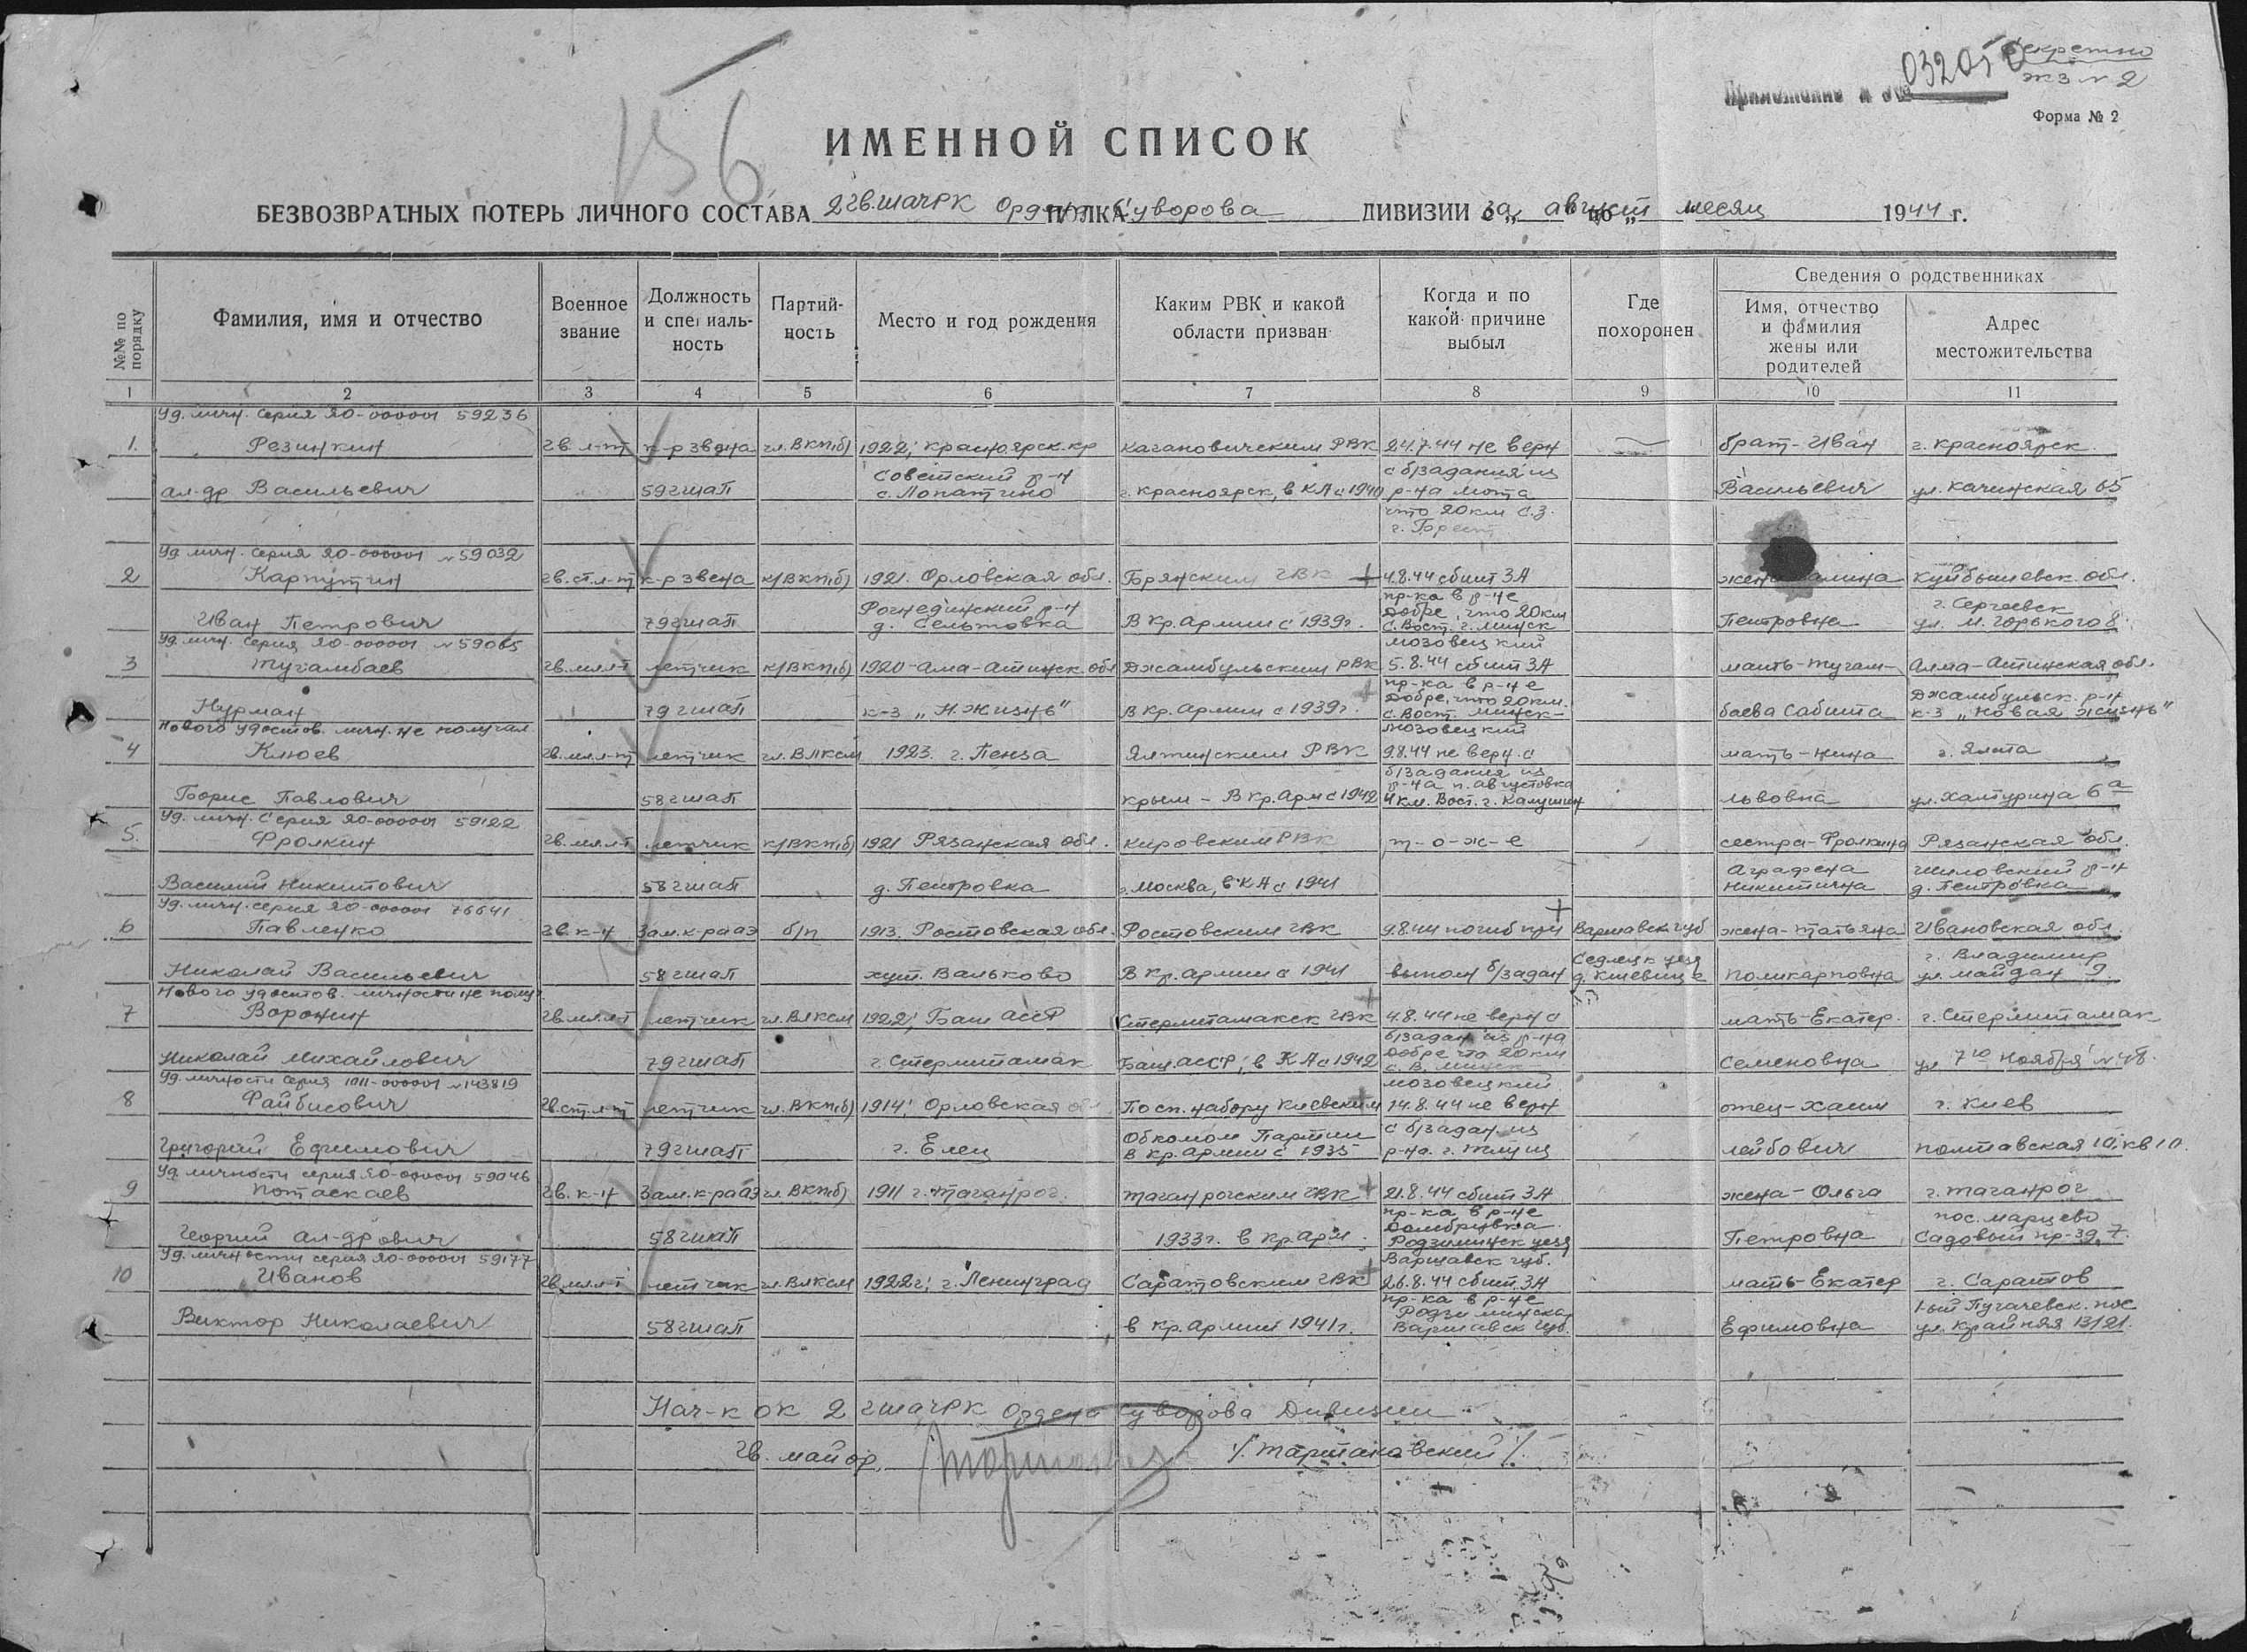 Секретно
032050
экз № 2
Приложение к №
Форма № 2
156
ИМЕННОЙ СПИСОК
БЕЗВОЗВРАТНЫХ ПОТЕРЬ ЛИЧНОГО СОСТАВА 2 гв.шачРК Ордена ПОЛКА Суворова ДИВИЗИИ за август месяц 1944 г.
№№ по порядку
Фамилия, имя и отчество
Военное звание
Должность и специальность
Партийность
Место и год рождения
Каким РВК и какой области призван
Когда и по какой причине выбыл
Где похоронен
Сведения о родственниках
Имя, отчество и фамилия жены или родителей
Адрес местожительства
1 2 3 4 5 6 7 8 9 10 11
Уд. личн. серия 20-000001 59236
1. Резинкин гв. л-т к-р звена чл. ВКП(б) 1922, Красноярск. кр Кагановичским РВК 24.7.44 не верн брат-Иван г. Красноярск
Ал-др Васильевич 59 гшап Советский р-н с. Лопатино г. Красноярск, в КА с 1940 с б/задания из р-на Васильевич ул. Качинская 65
что 20км с.з.
г. Брест
Уд. личн. серия 20-000001 №59032
2 Карпутин гв. ст. л-т к-р звена к/ВКП(б) 1921. Орловская обл. Брянским ГВК 4.8.44 сбит ЗА жена Куйбышевск. обл.
Иван Петрович 79 гшап Рогнединский р-н д. Сельтовка В Кр. Армии с 1939г. пр-ка в р-не Добре, что 20км с. Вост. г. Минск Мозовецкий Петровна г. Сергеевск ул. М. Горького 8
Уд. личн. Серия 20-000001 №59065
3 Тугамбаев гв. мл. л-т летчик к/ВКП(б) 1920-Ама-Атинск. обл Джамбульским РВК 5.8.44 сбит ЗА мать-Тугам- Алма-Атинская обл.
Нурман 79 гшап к-з „Н. Жизнь" в Кр. Армии с 1939г. пр-ка в р-не Добре, что 20км. с. Вост. Минск- Мозовецкий баева Сабита Джамбульск. р-н к-з „Новая жизнь"
Нового удостов. личн. не получал
4 Клюев гв. мл. л-т летчик чл. ВЛКСМ 1923. г. Пенза Ялтинским РВК 9.8.44 не верн. с мать-Нина г. Ялта
Борис Павлович 58 гшап Крым - В Кр. Арм с 1942 б/задания из р-на п. Августовка 4км. Вост. г. Калушин Львовна ул. Халтурина 6а
Уд. личн. Серия 20-000001 59122
5. Фролкин гв. мл. л-т летчик к/ВКП(б) 1921 Рязанская обл. Кировским РВК т-о-ж-е сестра-Фролкина Рязанская обл.
Василий Никитович 58 гшап д. Петровка г. Москва, в КА с 1941 Аграфена Никитична Шиловский р-н д. Петровка
Уд. личн. серия 20-000001 76641
6 Павленко гв. к-н Зам. к-ра аэ б/п 1913. Ростовская обл. Ростовским ГВК 9.8.44 погиб при Варшавск. губ жена-Татьяна Ивановская обл.
Николай Васильевич 58 гшап хут. Вальково В Кр. Армии с 1941 выполн б/задан Седлецк уезд Поликарповна г. Владимир ул. Майдан 9
Нового удостов. личности не получ.
7 Воронин гв. мл. л-т летчик чл. ВЛКСМ 1922, Баш АССР Стерлитамакск ГВК 4.8.44 не верн с мать-Екатер. г. Стерлитамак
Николай Михайлович 79 гшап г. Стерлитамак Баш. АССР, в КА с 1942 б/задан из р-на Добре что 20км с. В. Минск Мозовецкий Семеновна ул 7го Ноября №48.
Уд. личности серия 1011-000001 №143819
8 Файбисович гв. ст. л-т летчик чл. ВКП(б) 1914, Орловская обл По сп. набору Киевским 14.8.44 не верн отец-Хаим г. Киев
Григорий Ефимович 79 гшап г. Елец Обкомом Партии в Кр. Армии с 1935 с б/задан. из р-на. г. Тлущ Лейбович Полтавская 10, кв 10.
Уд. личности серия 20-000001 59046
9 Потаскаев гв. к-н Зам. к-ра аэ чл. ВКП(б) 1911 г. Таганрог. Таганрогским ГВК 21.8.44 сбит ЗА жена-Ольга г. Таганрог
Георгий Ал-дрович 58 гшап 1933г. в Кр. Арм. пр-ка в р-не Домбрувка Родзиминск уезд Варшавск губ. Петровна пос. Марцево Садовый пр-зд 7.
Уд. личности серия 20-000001 59177
10 Иванов гв. мл. л-т летчик чл. ВЛКСМ 1922г, г. Ленинград Саратовским ГВК 26.8.44 сбит ЗА мать-Екатер г. Саратов
Виктор Николаевич 58 гшап в Кр. Армии 1941г. пр-ка в р-не Родзиминска Варшавск губ. Ефимовна 1-ый Пугачевск. пос ул. Крайняя 13/21.
Нач-к ОК 2 гшачРК Ордена Суворова Дивизии
гв. майор /Тартаковский/.